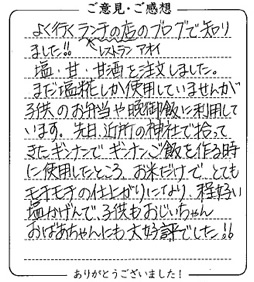 ご意見・ご感想
よく行くランチの店のブログで知り
ました!!
レストラン アオイ
塩・甘・甘酒を注文しました。
まだ塩糀しか使用していませんが
子供のお弁当や晩御飯に利用して
います。先日、近所の神社で拾って
きたギンナンでギンナンご飯を作る時
に使用したところ、お米だけで、とても
モチモチの仕上がりになり、程好い
塩かげんで、子供もおじいちゃん
おばあちゃんにも大好評でした!!
ありがとうございました!